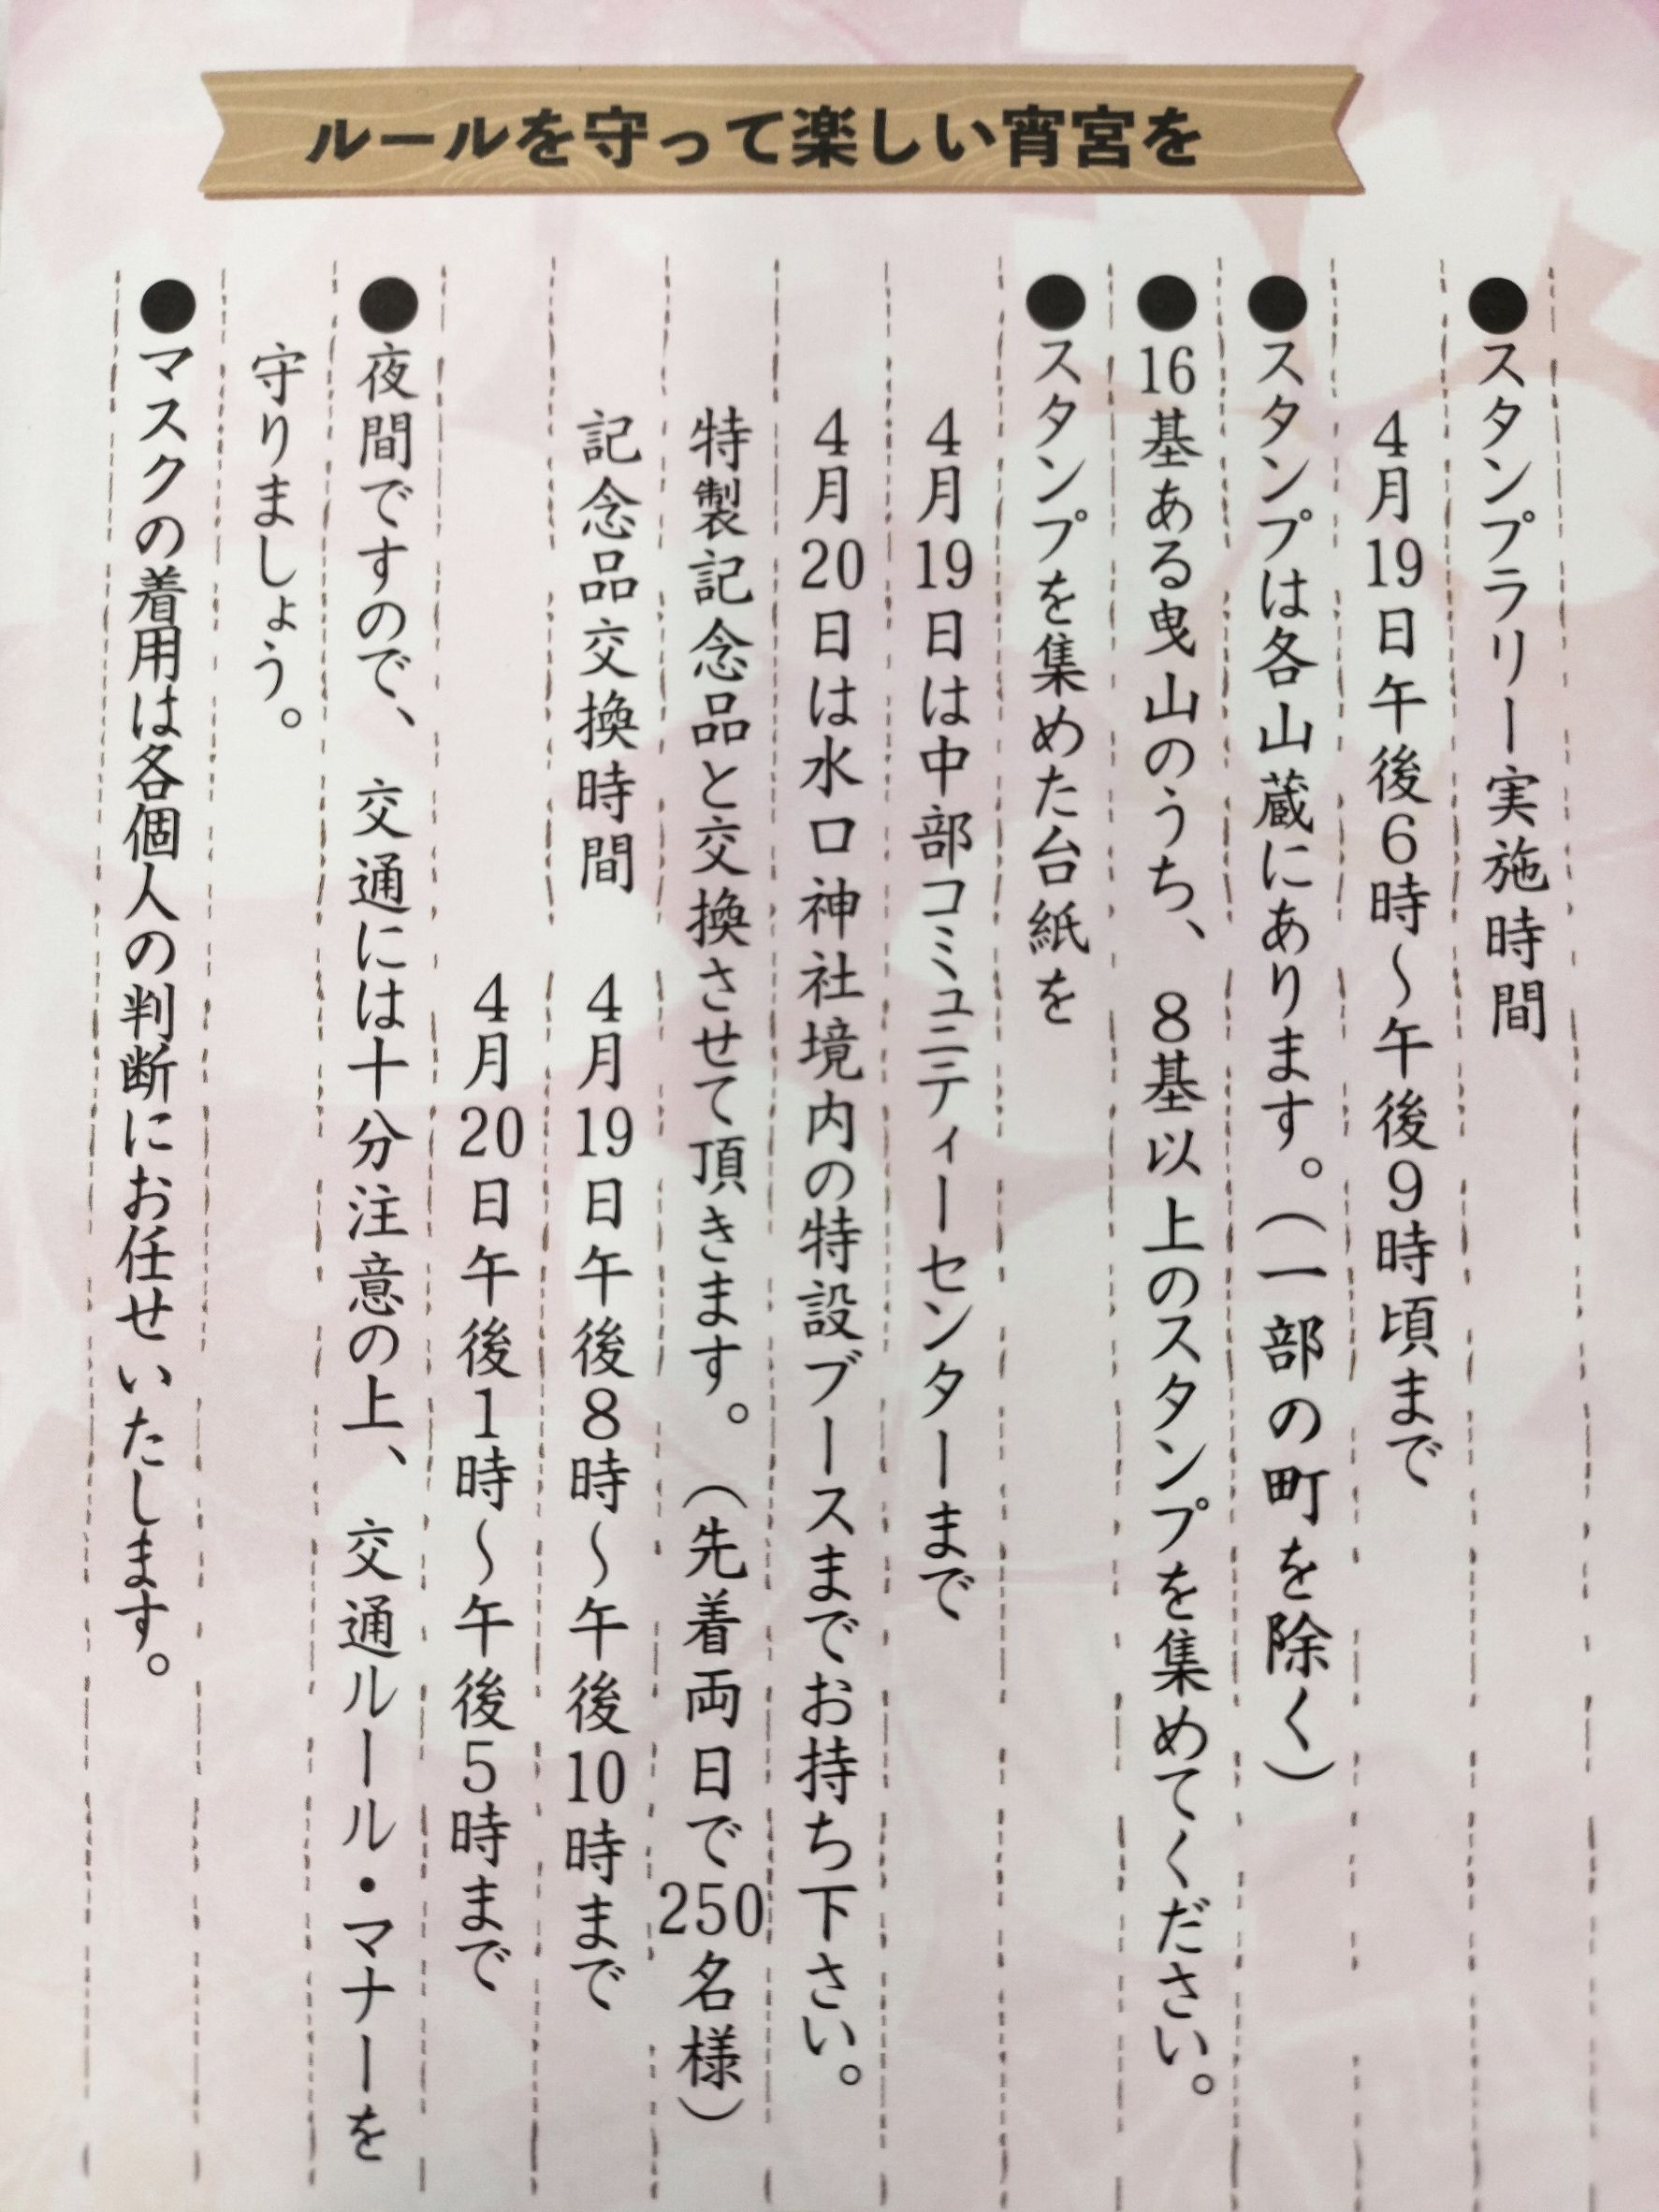 ルールを守って楽しい宵宮を
●スタンプラリー実施時間
4月19日午後6時～午後9時頃まで
●スタンプは各山蔵にあります。(一部の町を除く)
●16基ある曳山のうち、8基以上のスタンプを集めてください。
●スタンプを集めた台紙を
4月19日は中部コミュニティーセンターまで
4月20日は水口神社境内の特設ブースまでお持ち下さい。
特製記念品と交換させて頂きます。(先着両日で250名様)
記念品交換時間 4月19日午後8時～午後10時まで
4月20日午後1時～午後5時まで
●夜間ですので、交通には十分注意の上、交通ルール・マナーを
守りましょう。
●マスクの着用は各個人の判断にお任せいたします。